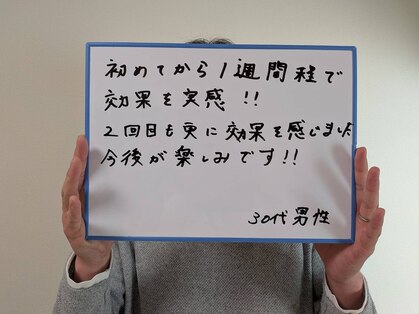 初めてから1週間程で
効果を実感!!
2回目も更に効果を感じました
今後が楽しみです!!
30代男性